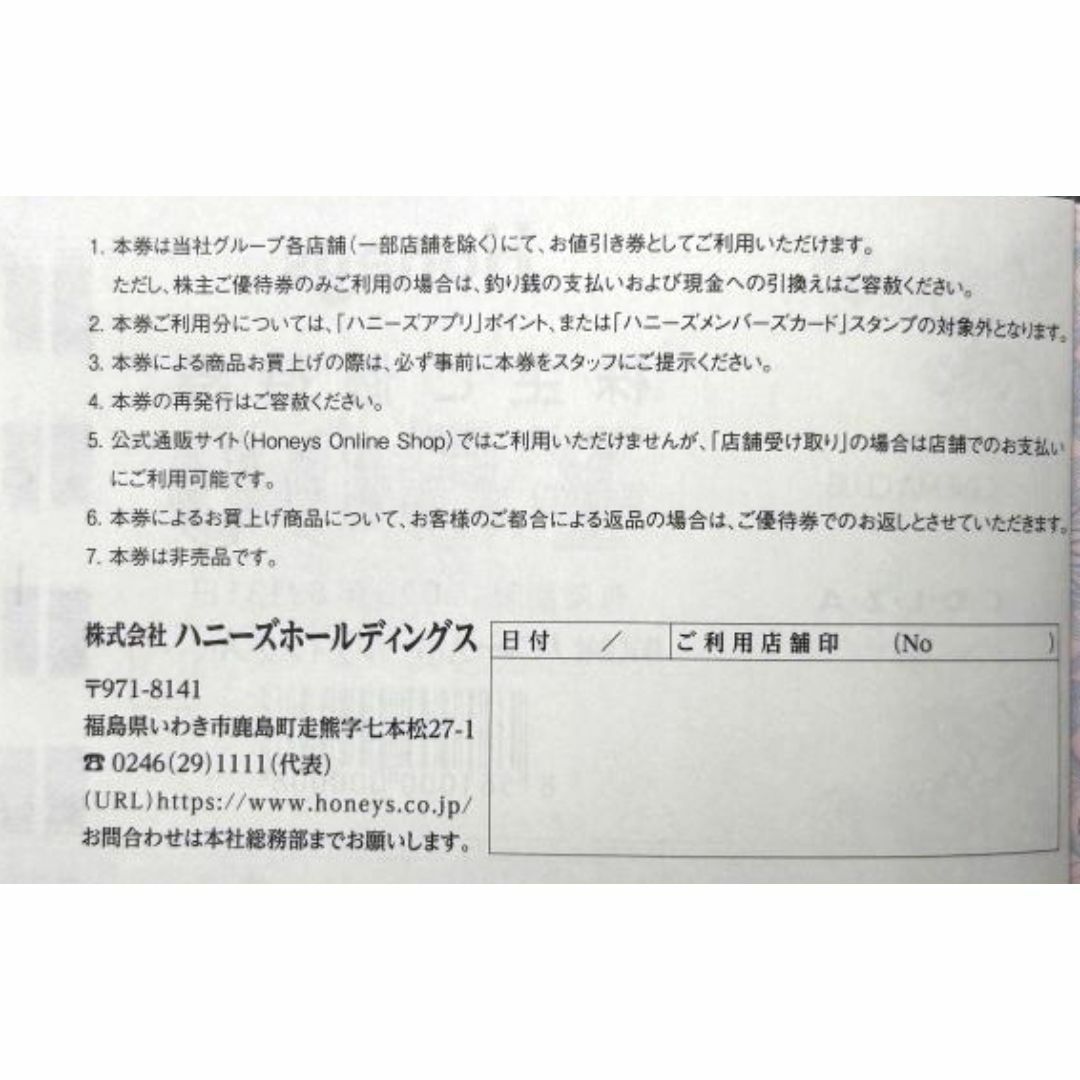 1. 本券は当社グループ各店舗(一部店舗を除く)にて、お値引き券としてご利用いただけます。
ただし、株主ご優待券のみご利用の場合は、釣り銭の支払いおよび現金への引換えはご容赦ください。
2. 本券ご利用分については、「ハニーズアプリ」ポイント、または「ハニーズメンバーズカード」スタンプの対象外となります。
3. 本券による商品お買上げの際は、必ず事前に本券をスタッフにご提示ください。
4. 本券の再発行はご容赦ください。
5. 公式通販サイト(Honeys Online Shop)ではご利用いただけませんが、「店舗受け取り」の場合は店舗でのお支払い
にご利用可能です。
6. 本券によるお買上げ商品について、お客様のご都合による返品の場合は、ご優待券でのお返しとさせていただきます。
7. 本券は非売品です。
株式会社 ハニーズホールディングス
〒971-8141
福島県いわき市鹿島町走熊字七本松27-1
☎ 0246(29)1111(代表)
(URL)https://www.honeys.co.jp/
お問合わせは本社総務部までお願いします。
日付 / ご利用店舗印 (No )